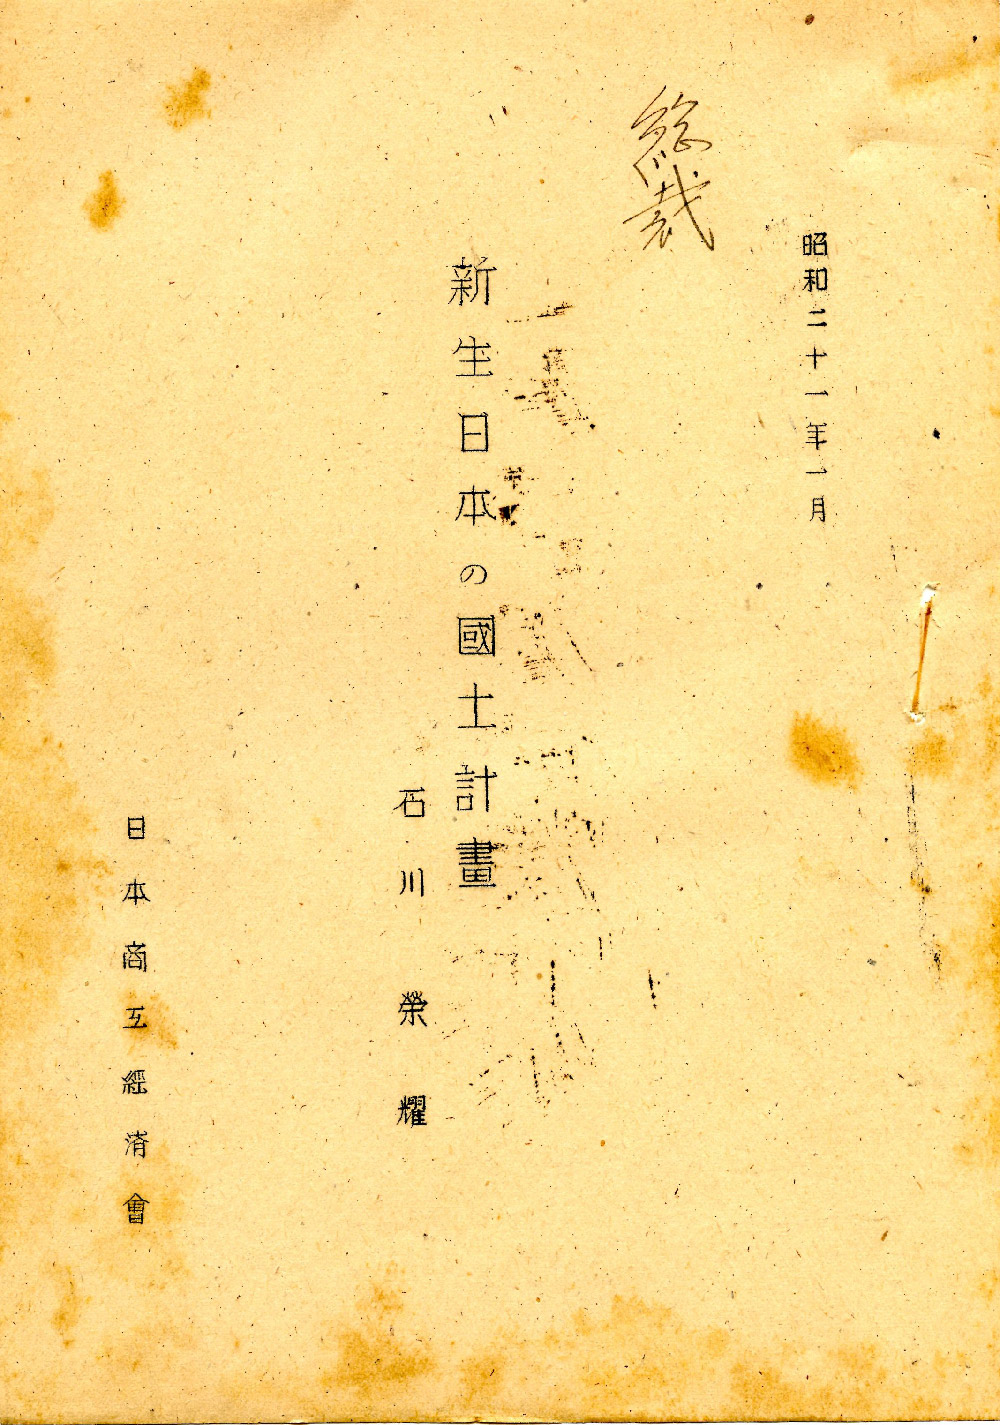 昭和二十一年一月
総裁
新生日本の國土計畫
石川榮耀
日本商工經済會